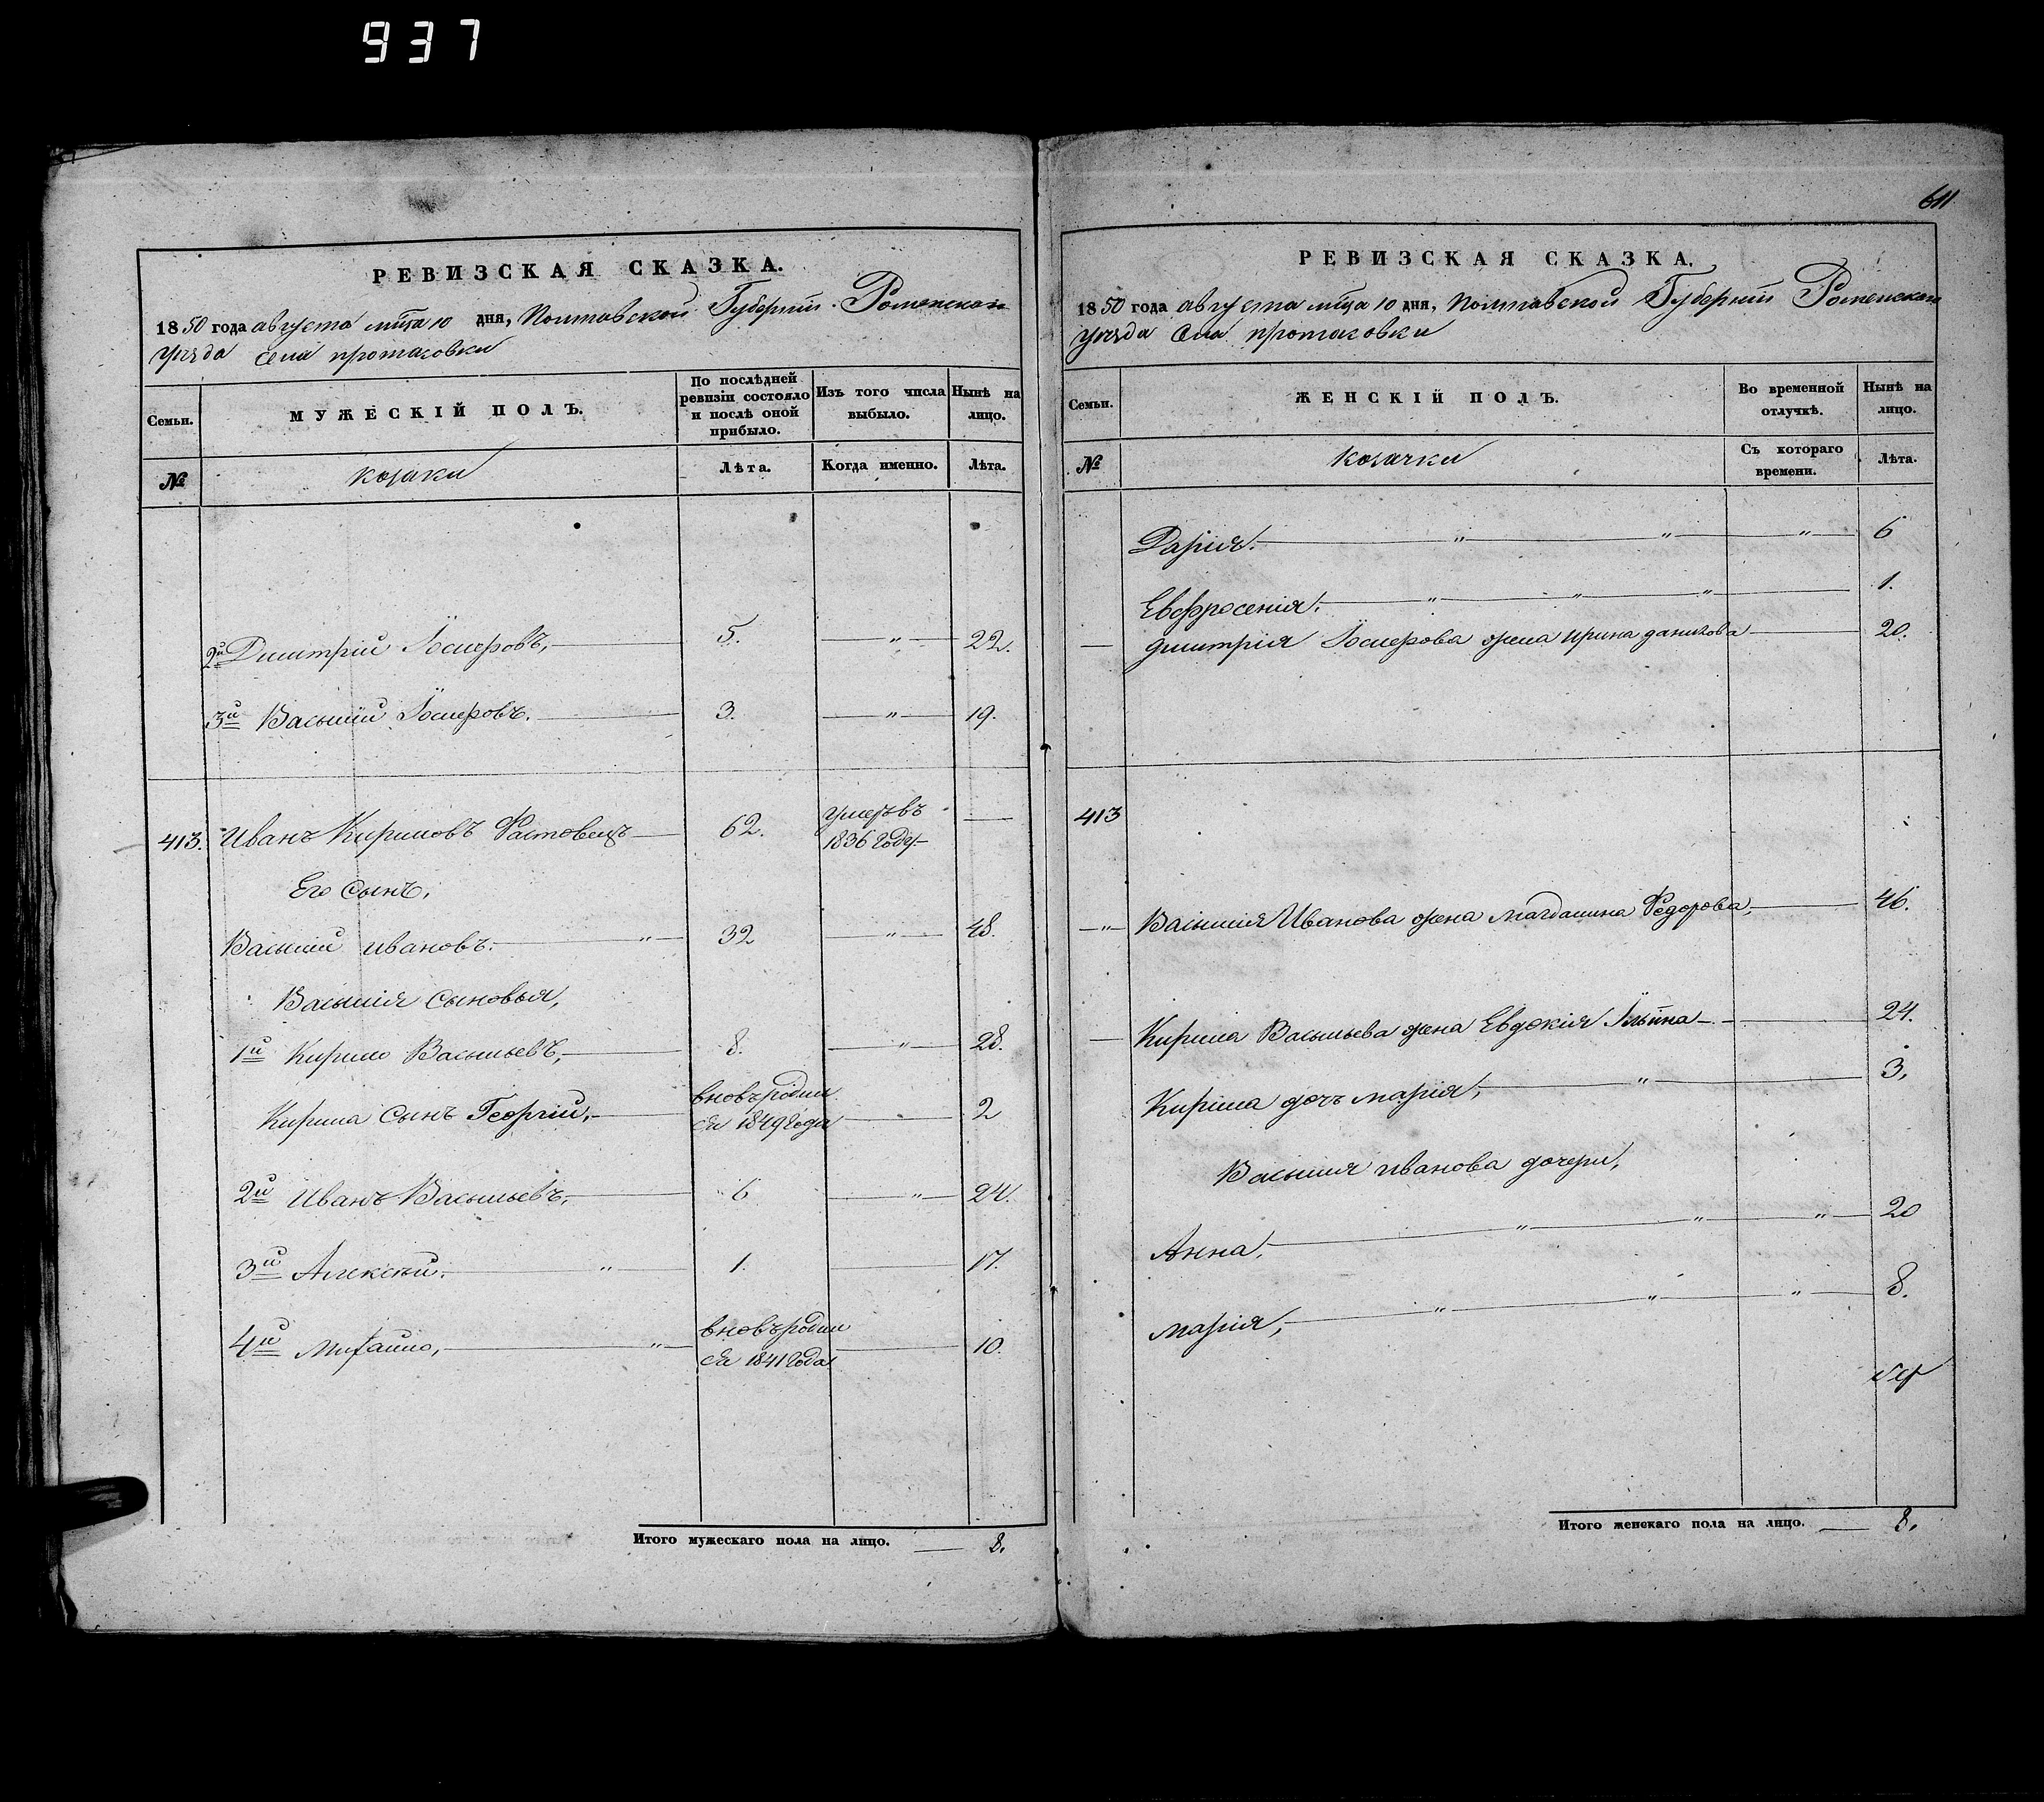 937
РЕВИЗСКАЯ СКАЗКА.
1850 года августа мца 10 дня, Полтавской Губернiи Роменскаго
уѣзда села протасовки
Семьи. МУЖЕСКIЙ ПОЛЪ. По послѣдней ревизiи состояло и послѣ оной прибыло. Изъ того числа выбыло. Нынѣ на лицо.
№ козаки Лѣта. Когда именно. Лѣта.
2й Дмитрiй Iосифовъ, 5. " 22.
3й Василiй Iосифовъ. 3. " 19.
413. Иванъ Кириловъ Фастовецъ 62. умеръ въ 1836 Году
Его сынъ,
Василiй ивановъ. " 32 " 48.
Василiя сыновья,
1й Кирило Васильевъ, 8. " 28.
Кирила сынъ Георгiй, вновь родил ся 1849 Года " 2
2й Иванъ Васильевъ, 6 " 24.
3й Алексѣй. " 1. 17.
4й Михайло, " вновь родил ся 1841 Года 10.
Итого мужескаго пола на лицо. 8.
611
РЕВИЗСКАЯ СКАЗКА.
1850 года августа мца 10 дня, Полтавской Губернiи Роменскаго
уѣзда села протасовки
Семьи. ЖЕНСКIЙ ПОЛЪ. Во временной отлучкѣ. Нынѣ на лицо.
№ козачки Съ котораго времени. Лѣта.
Дарiя. " " " 6
Евфросенiя. " " " 1.
дмитрiя Iосифова жена ирина данилова 20.
413
" Василiя Иванова жена магдалина Федорова, 46.
Кирила Васильева жена Евдокiя Ильина 24.
Кирила дочь марiя, " 3,
Василiя иванова дочери,
Анна, " " " 20
марiя, " " " 8.
Итого женскаго пола на лицо. 8.